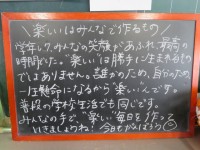 ＼楽しいはみんなで作るもの／
学年レク、みんなの笑顔があふれ、最高の
時間でした。"楽しい"は勝手に生まれるもの
ではありません。誰かのため、自分のため、
一生懸命になるから"楽しい"んです。
普段の学校生活でも同じです。
みんなの手で、"楽しい"毎日を作って
いきましょうね！ 今日もがんばろう